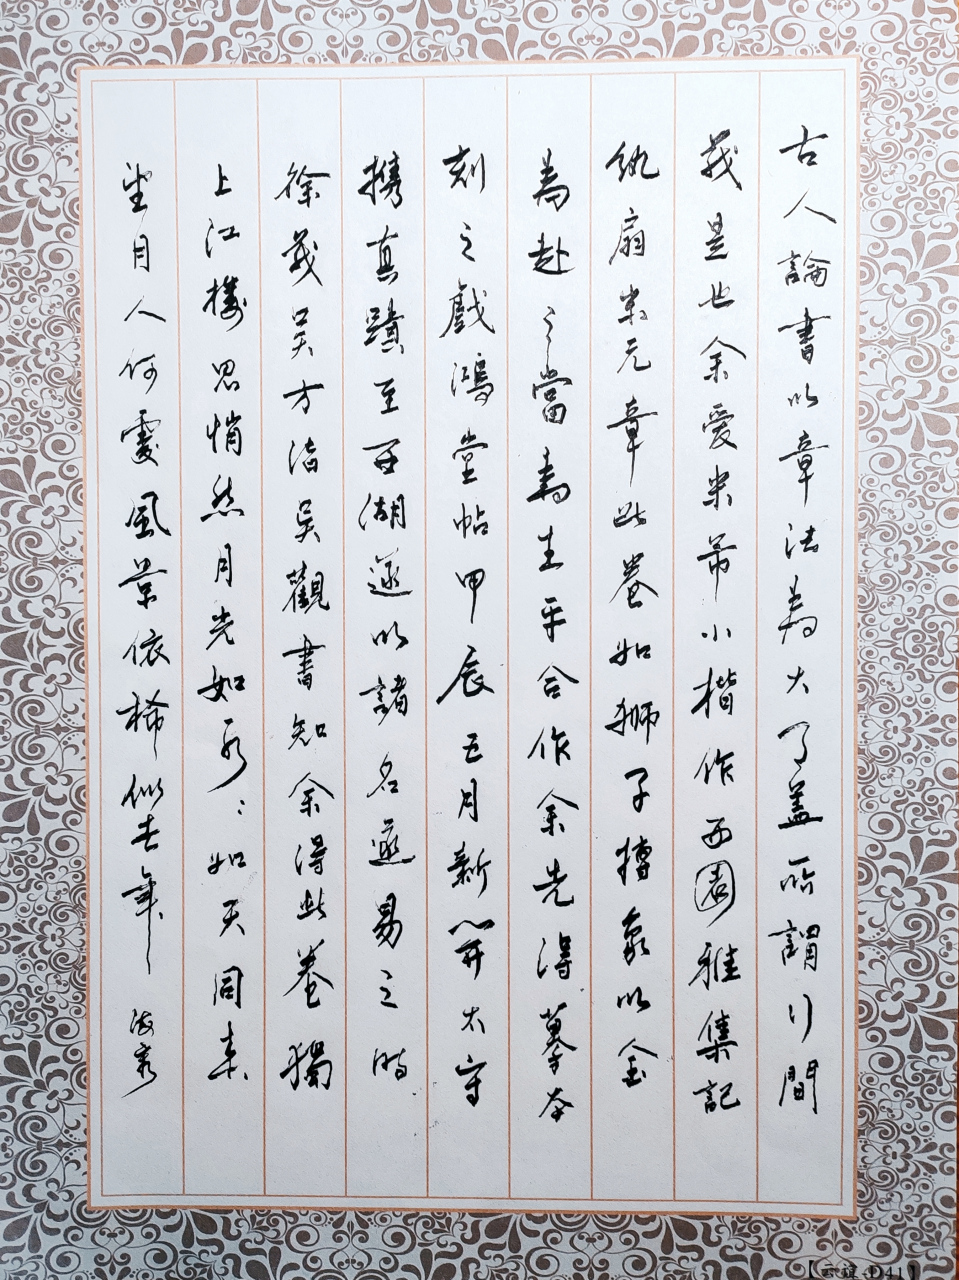 古人論書以章法為大事盖所謂行間
茂是也余愛米芾小楷作西園雅集記
紈扇米元章此卷如獅子搏象以全
為赴之當為生平合作余先得摹本
刻之戲鴻堂帖甲辰五月新安太守
携真蹟至西湖遂以諸名迹易之時
徐茂吳方詣吳觀書知余得此卷獨
上江樓思悄然月光如水水如天同来
望月人何處風景依稀似去年